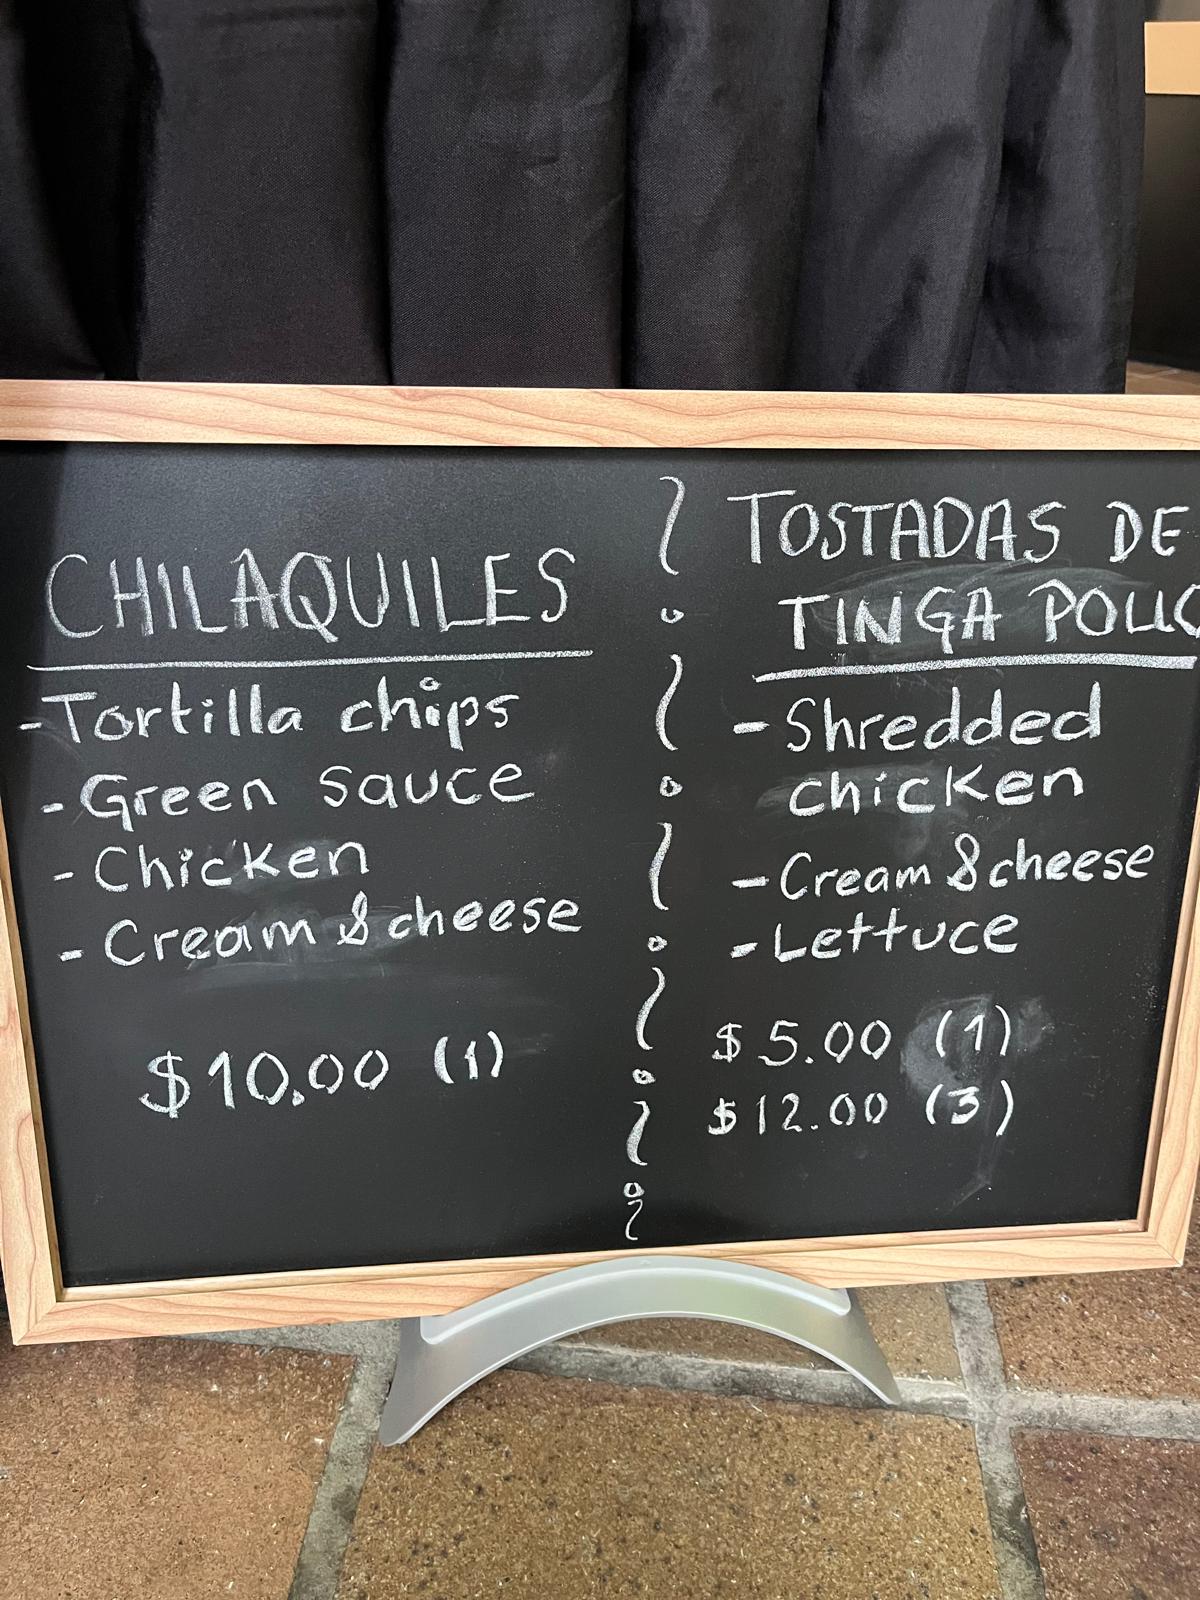 CHILAQUILES
-Tortilla chips
-Green sauce
-Chicken
-Cream & cheese
$10.00 (1)
TOSTADAS DE
TINGA POLLO
-Shredded
chicken
-Cream & cheese
-Lettuce
$5.00 (1)
$12.00 (3)